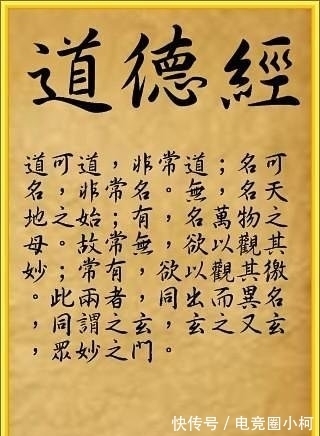 道德經
道可道，非常道；名可
名，非常名。無，名天
地之始；有，名萬物之
母。故常無，欲以觀其
妙；常有，欲以觀其徼
。此兩者，同出而異名
，同謂之玄。玄之又玄
，眾妙之門。
快传号/电竞圈小柯